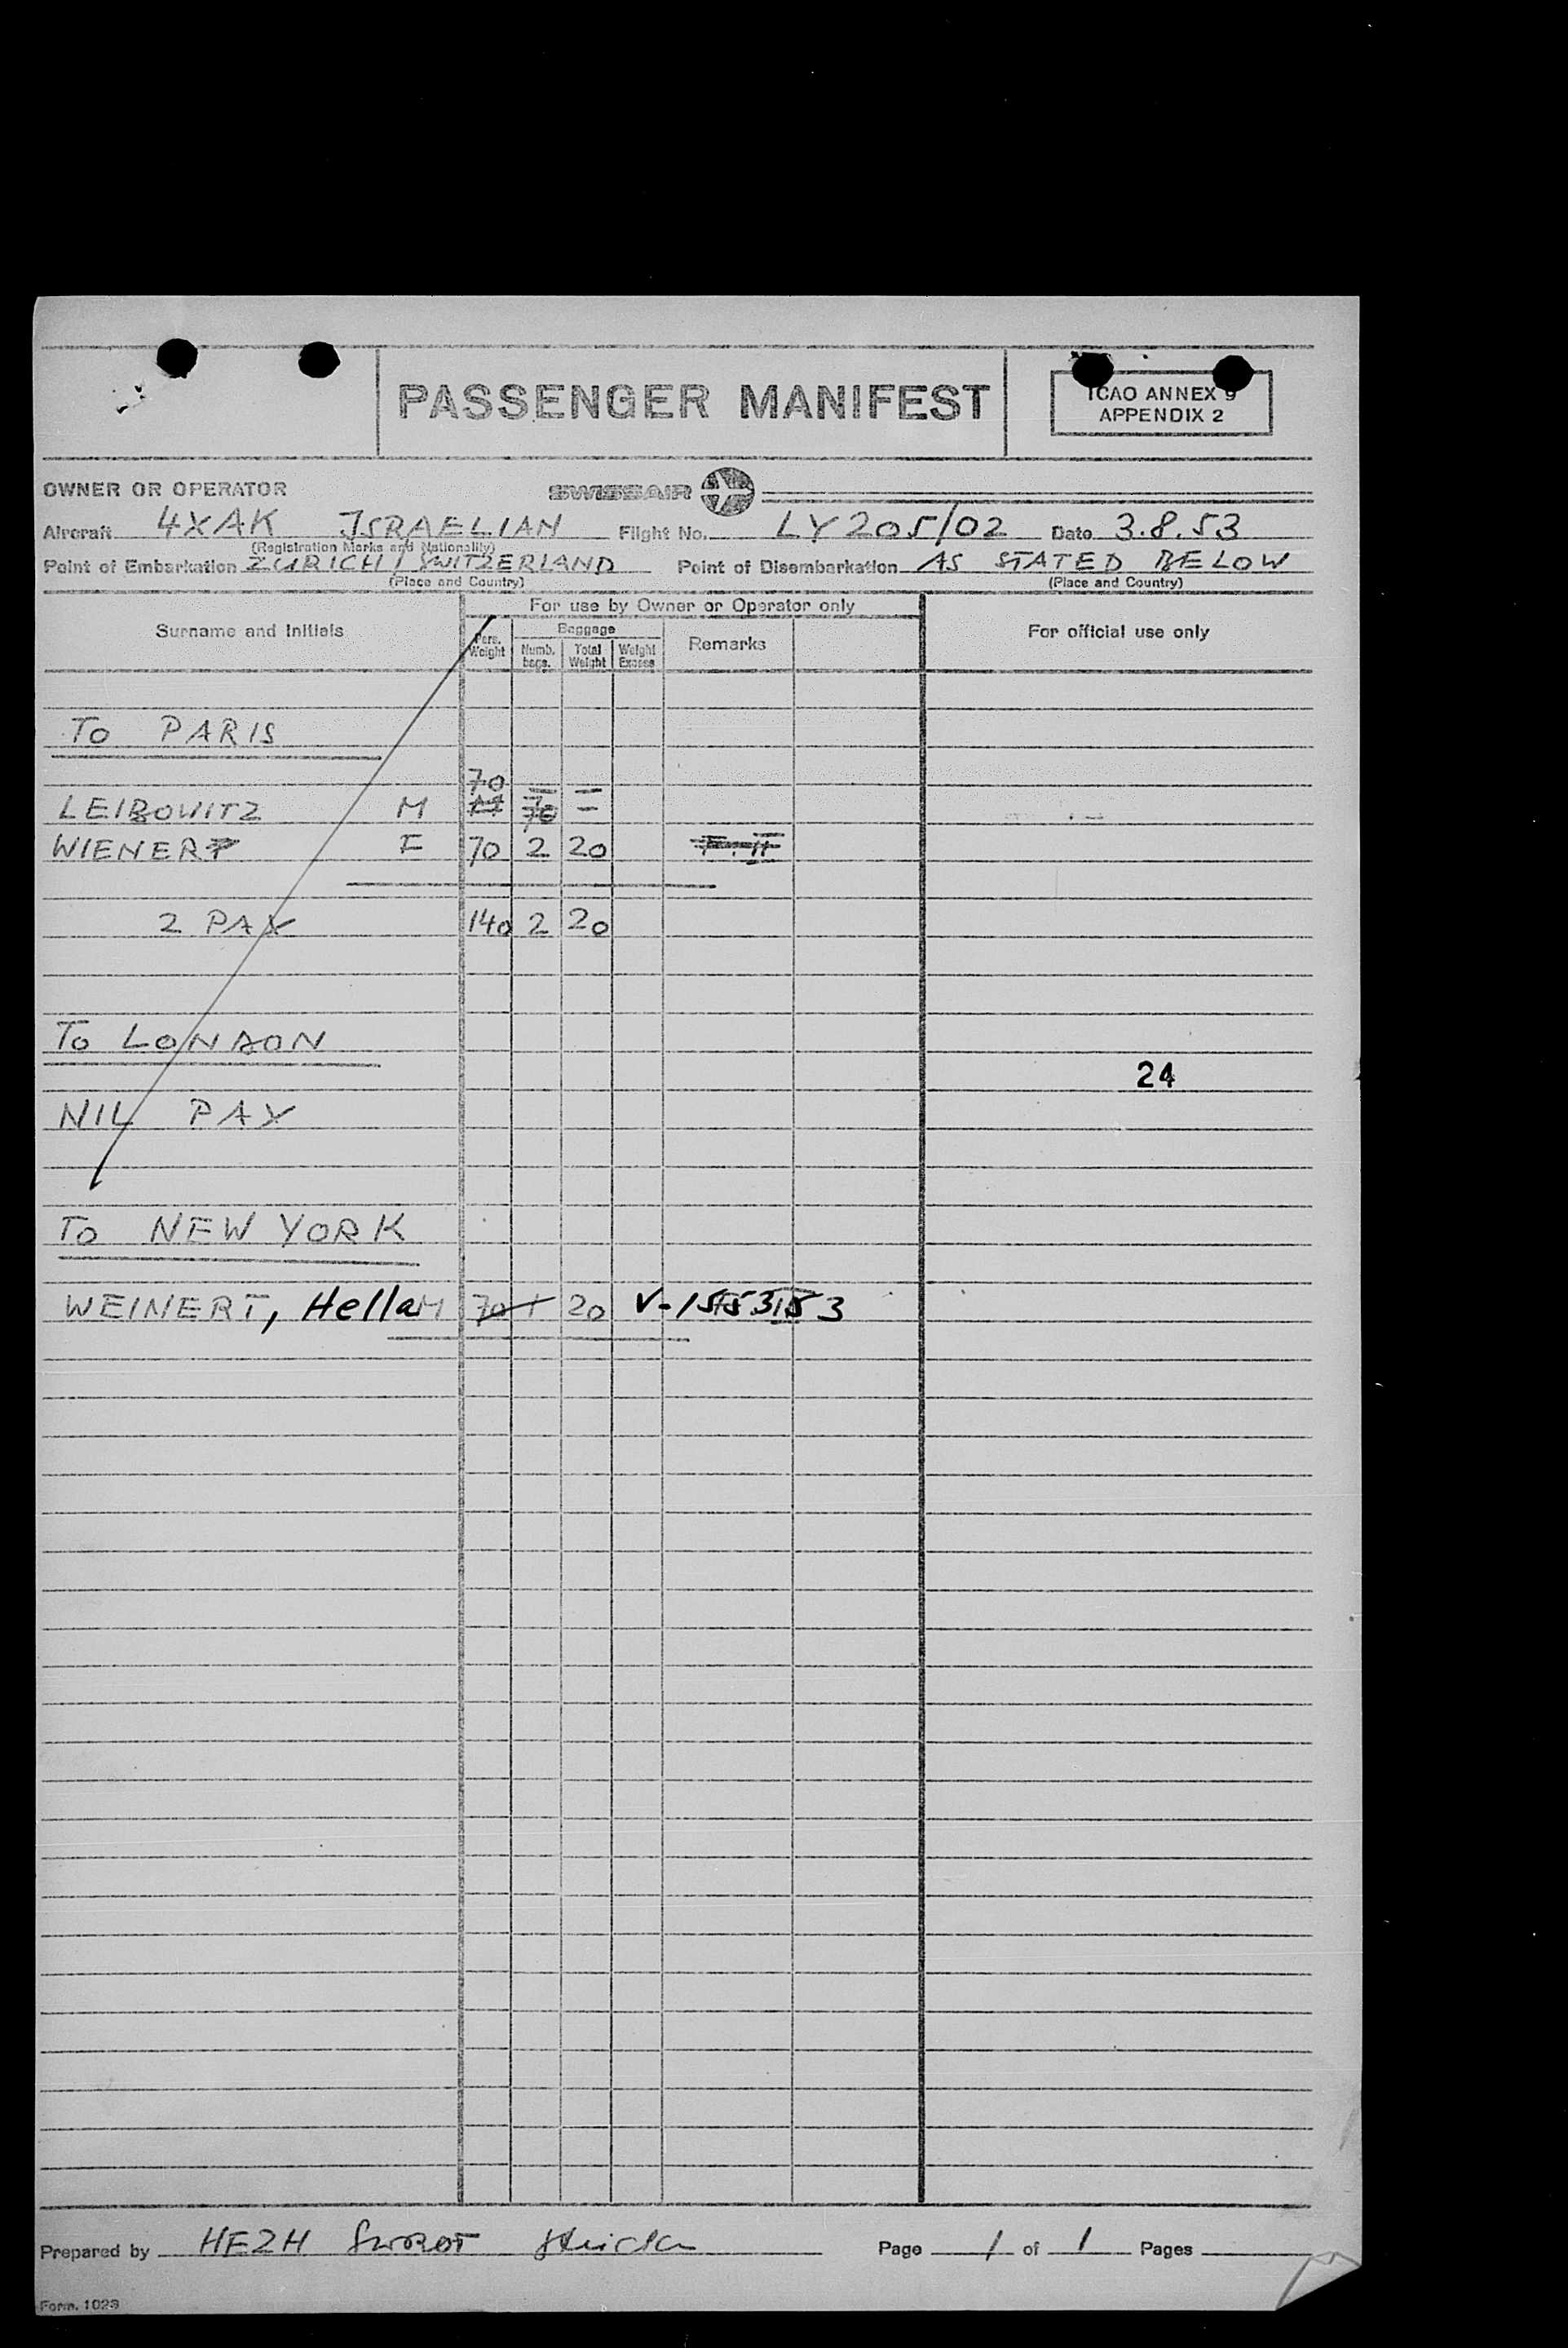 PASSENGER MANIFEST
ICAO ANNEX 9
APPENDIX 2
OWNER OR OPERATOR SWISSAIR
Aircraft 4XAK ISRAELIAN Flight No. LY 205/02 Date 3.8.53
(Registration Marks and Nationality)
Point of Embarkation ZURICH / SWITZERLAND Point of Disembarkation AS STATED BELOW
(Place and Country) (Place and Country)
For use by Owner or Operator only
Surname and Initials Pers. Weight Baggage Numb. bags. Total Weight Weight Excess Remarks For official use only
TO PARIS
70
LEIBOWITZ M – –
WIENER F 70 2 20
2 PAX 140 2 20
TO LONDON
24
NIL PAX
TO NEW YORK
WEINERT, Hella M 70 1 20 V-
Prepared by Page 1 of 1 Pages
Form. 1023